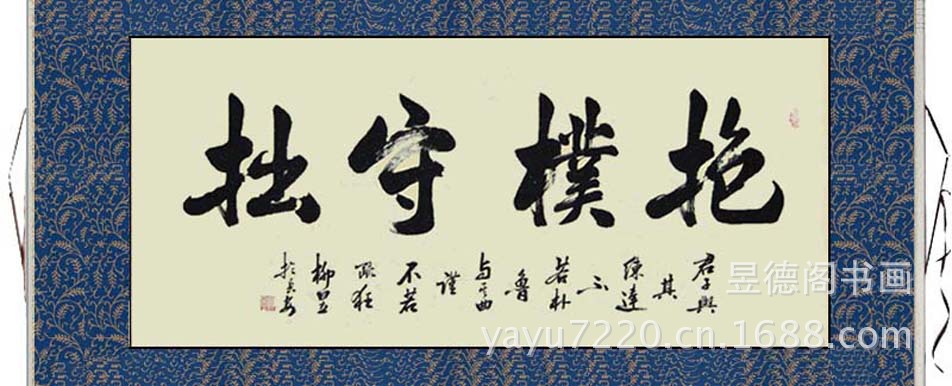 抱樸守拙
君子與
其
練達
不
若朴
魯
与其曲
謹
不若
疏狂
昱德阁书画
yayu7220.cn.1688.com